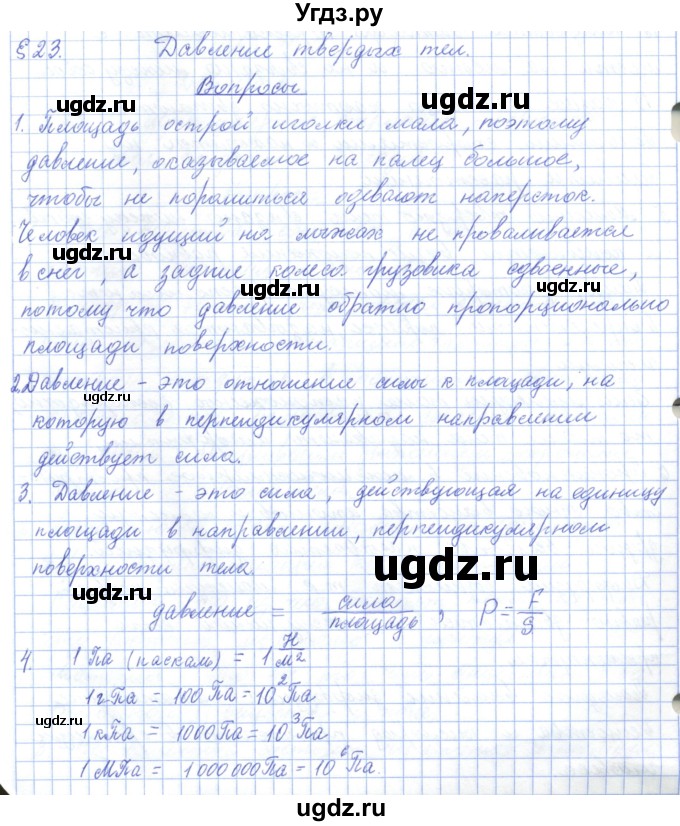 Угдз.ру
§ 23. Давление твердых тел.
Вопросы
1. Площадь острой иголки мала, поэтому
давление, оказываемое на палец большое,
чтобы не поралиться одевают наперсток.
Человек идущий на лыжах не проваливается
в снег, а задние колеса грузовика сдвоенные,
потому что давление обратно пропорционально
площади поверхности.
2. Давление - это отношение силы к площади, на
которую в перпендикулярном направлении
действует сила.
3. Давление - это сила, действующая на единицу
площади в направлении, перпендикулярном
поверхности тела.
давление = сила/площадь, P = F/S
4. 1 Па (паскаль) = 1 Н/м²
1 гПа = 100 Па = 10² Па
1 кПа = 1000 Па = 10³ Па
1 МПа = 1 000 000 Па = 10⁶ Па.
ugdz.ru
ugdz.ru
ugdz.ru
ugdz.ru
ugdz.ru
ugdz.ru
ugdz.ru
ugdz.ru
ugdz.ru
ugdz.ru
ugdz.ru
ugdz.ru